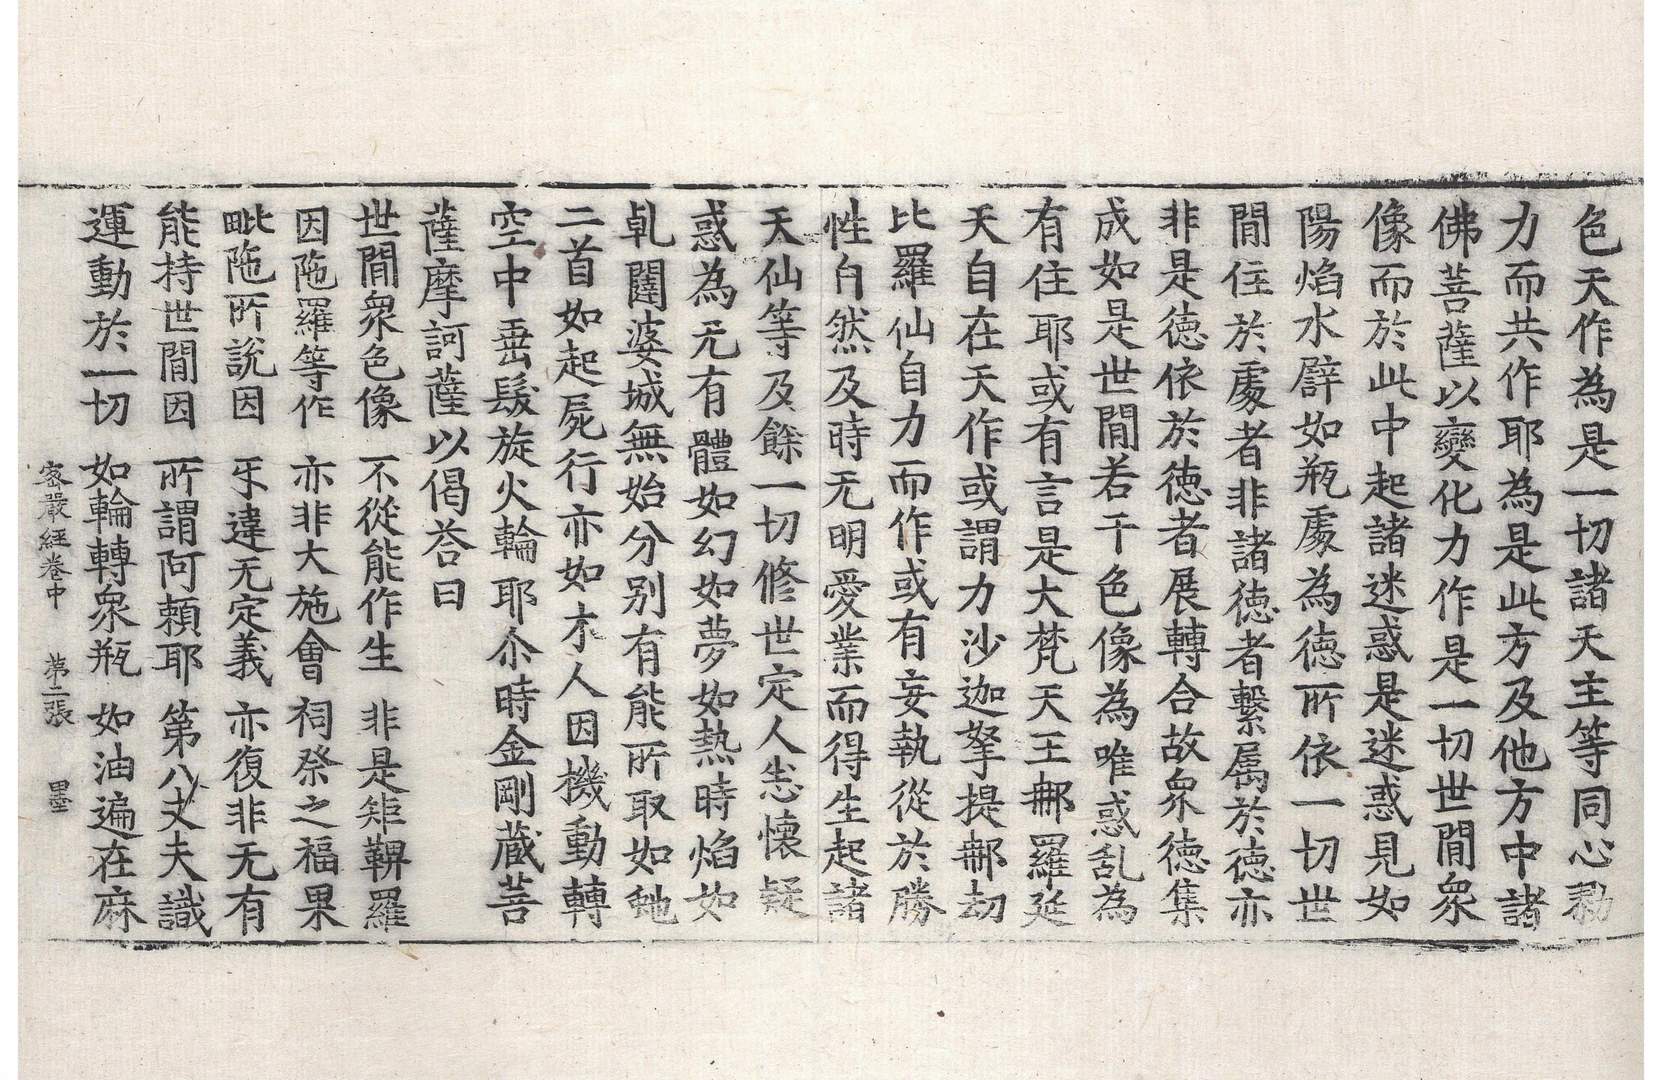 色天作為是一切諸天主等同心勠
力而共作耶為是此方及他方中諸
佛菩薩以變化力作是一切世間衆
像而於此中起諸迷惑是迷惑見如
陽焰水譬如瓶處為徳所依一切世
間住於處者非諸徳者繫屬於徳亦
非是徳依於徳者展轉合故衆徳集
成如是世間若干色像為唯惑乱為
有住耶或有言是大梵天王郍羅延
天自在天作或謂力沙迦拏提郍劫
比羅仙自力而作或有妄執從於勝
性自然及時无明愛業而得生起諸
天仙等及餘一切修世定人悉懷疑
惑為无有體如幻如夢如熱時焰如
乹闥婆城無始分别有能所取如虵
二首如起屍行亦如木人因機動轉
空中垂髮旋火輪耶尒時金剛藏菩
薩摩訶薩以偈荅曰
世間衆色像 不從能作生 非是矩鞞羅
因陁羅等作 亦非大施會 祠祭之福果
毗陁所說因 乖違无定義 亦復非无有
能持世間因 所謂阿頼耶 第八丈夫識
運動於一切 如輪轉衆瓶 如油遍在麻
密嚴經卷中 第二張 墨